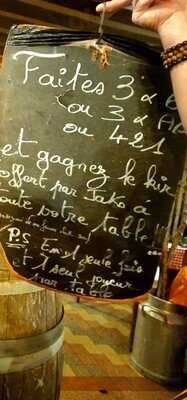 Faites 3 x 6
ou 3 x A
ou 421
et gagnez le kir
offert par Jako à
toute votre table
P.S: En 1 seule fois
et 1 seul joueur
par table